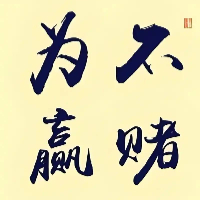 不赌
为赢